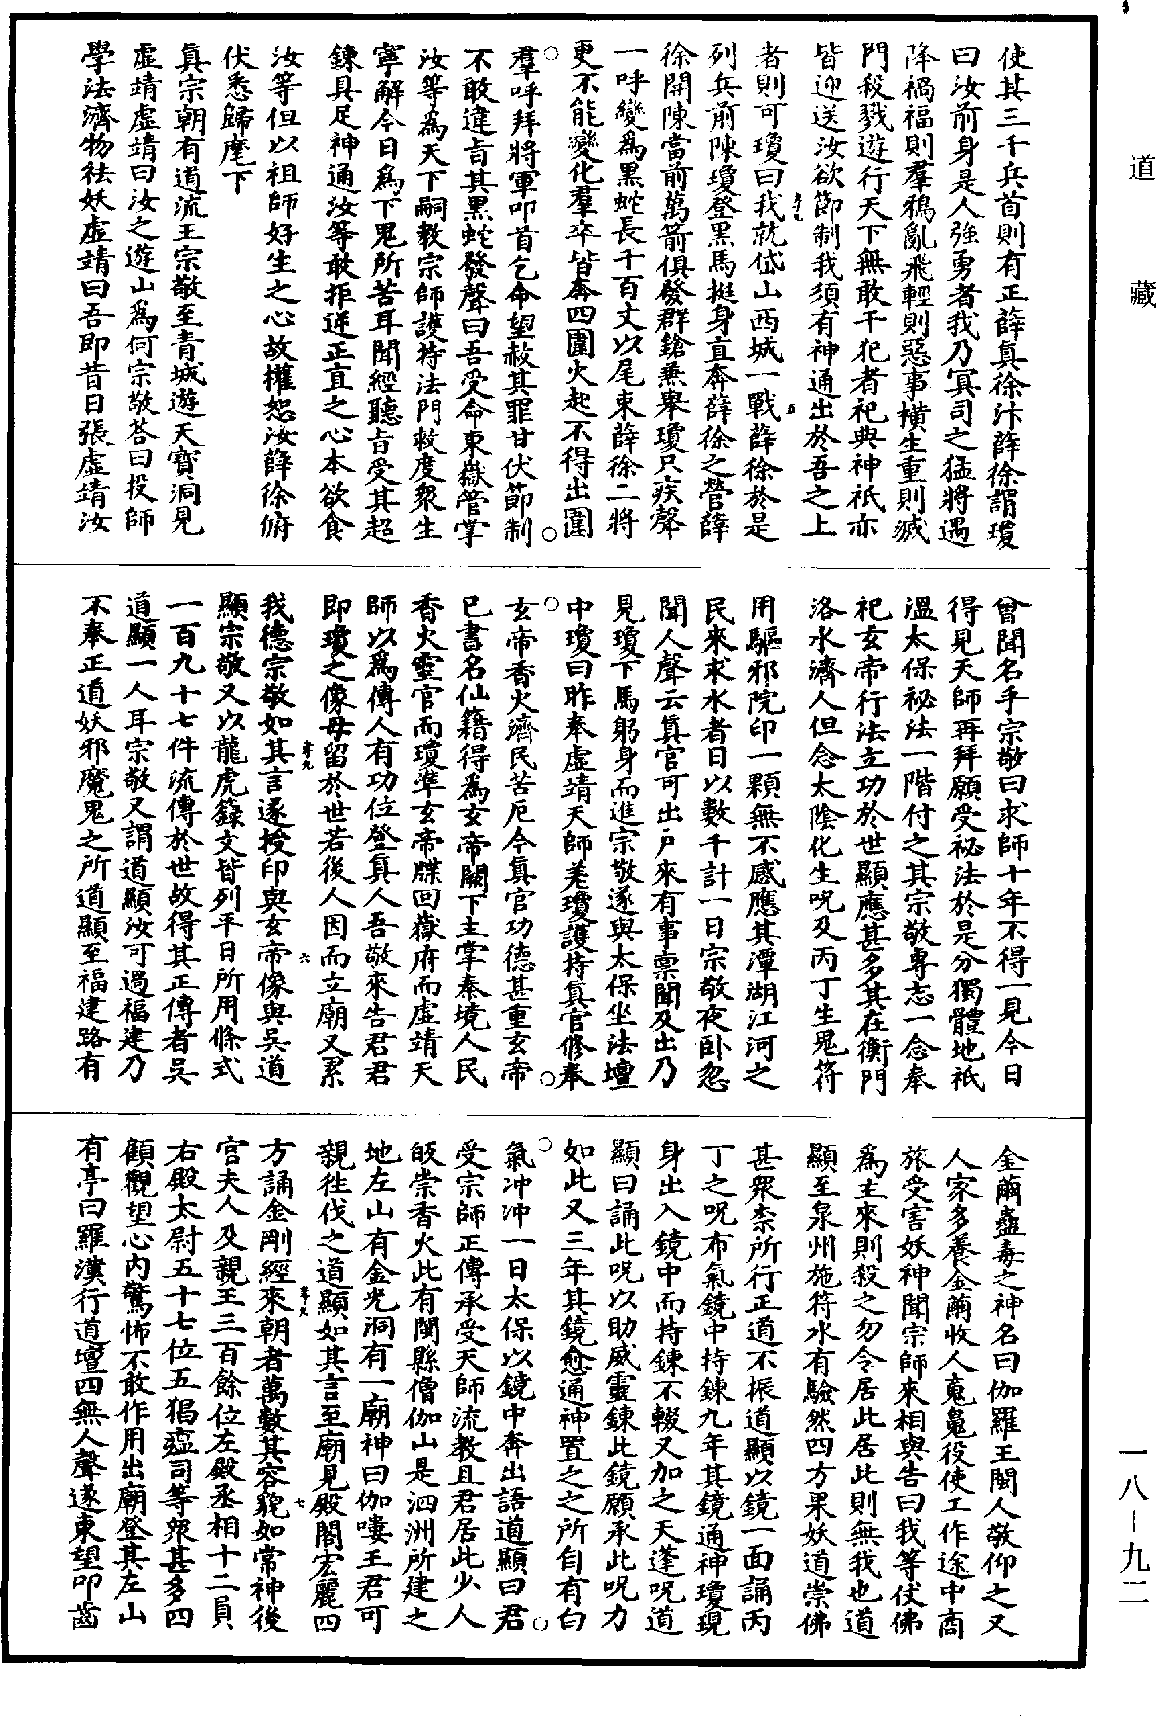 使其三千兵首則有正薛真徐汴薛徐謂瓊
曰汝前身是人強勇者我乃冥司之猛將遇
降禍福則羣鴉亂飛輕則惡事橫生重則滅
門殺戮遊行天下無敢干犯者祀典神祇亦
皆迎送汝欲節制我須有神通出於吾之上
者則可瓊曰我就岱山西城一戰薛徐於是
列兵前陳瓊登黑馬挺身直奔薛徐之營薛
徐開陳當前萬箭俱發群鎗兼舉瓊只疾聲
一呼變為黑蛇長千百丈以尾束薛徐二將
更不能變化羣卒皆奔四圍火起不得出圍
羣呼拜將軍叩首乞命望赦其罪甘伏節制
不敢違旨其黑蛇發聲曰吾受命東嶽管掌
汝等為天下嗣教宗師護持法門救度衆生
寧解今日為下鬼所苦耳聞經聽旨受其超
鍊具足神通汝等敢拒逆正直之心本欲食
汝等但以祖師好生之心故權恕汝薛徐俯
伏悉歸麾下
真宗朝有道流王宗敬至青城遊天寶洞見
虛靖虛靖曰汝之遊山為何宗敬荅曰投師
學法濟物袪妖虛靖曰吾即昔日張虛靖汝
曾聞名乎宗敬曰求師十年不得一見今日
得見天師再拜願受祕法於是分獨體地祇
溫太保祕法一階付之其宗敬專志一念奉
祀玄帝行法立功於世顯應甚多其在衡門
洛水濟人但念太陰化生呪及丙丁生鬼符
用驅邪院印一顆無不感應其潭湖江河之
民來求水者日以數千計一日宗敬夜卧忽
聞人聲云真官可出戶來有事禀聞及出乃
見瓊下馬躬身而進宗敬遂與太保坐法壇
中瓊曰昨奉虛靖天師差瓊護持真官修奉
玄帝香火濟民苦厄今真官功德甚重玄帝
已書名仙籍得為玄帝闕下主掌秦境人民
香火靈官而瓊準玄帝牒回嶽府而虛靖天
師以為傳人有功位登真人吾敬來告君君
即瓊之像毋留於世若後人因而立廟又系
我德宗敬如其言遂授印與玄帝像與吳道
顯宗敬又以龍虎籙文皆列平日所用條式
一百九十七件流傳於世故得其正傳者吳
道顯一人耳宗敬又謂道顯汝可過福建乃
不奉正道妖邪魔鬼之所道顯至福建路有
金蠒蠱毒之神名曰伽羅王閩人敬仰之又
人家多養金蠒收人䰟鬼役使工作途中商
旅受害妖神聞宗師來相與告曰我等伏佛
為主來則殺之勿令居此居此則無我也道
顯至泉州施符水有驗然四方果妖道崇佛
甚衆柰所行正道不振道顯以鏡一面誦丙
丁之呪布氣鏡中持鍊九年其鏡通神瓊現
身出入鏡中而持鍊不輟又加之天蓬呪道
顯曰誦此呪以助威靈鍊此鏡願承此呪力
如此又三年其鏡愈通神置之之所自有白
氣冲冲一日太保以鏡中奔出語道顯曰君
受宗師正傳承受天師流教且君居此少人
皈崇香火此有閩縣僧伽山是泗洲所建之
地左山有金光洞有一廟神曰伽嘍王君可
親往伐之道顯如其言至廟見殿閣宏麗四
方誦金剛經來朝者萬數其容貌如常神後
宮夫人及親王三百餘位左殿丞相十二員
右殿太尉五十七位五猖瘟司等衆甚多四
顧觀望心內驚怖不敢作用出廟登其左山
有亭曰羅漢行道壇四無人聲遂東望叩齒
道藏
一八－九二